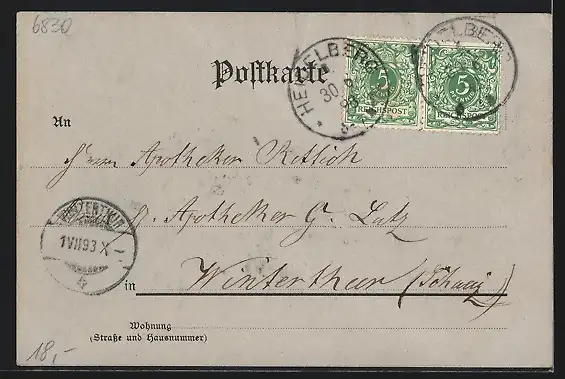 6830
Postkarte
HEIDELBERG
30 6 93
5
REICHSPOST
HEIDELBERG
5
REICHSPOST
An
Herrn Apotheker Rettich
p. Apotheker G. Lutz
WINTERTHUR
1 VII 93 X
in Winterthur (Schweiz)
Wohnung
(Straße und Hausnummer)
18,-